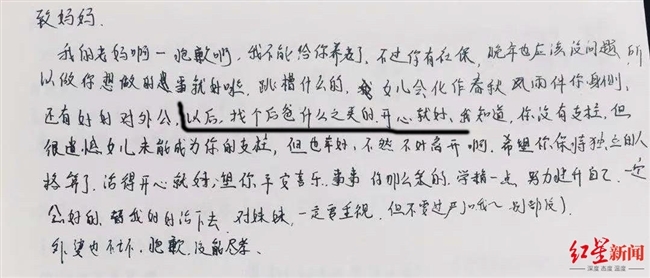 致妈妈.
我的老妈啊一抱歉啊，我不能给你养老了，不过你有社保，晚年也应该没问题，所
以做你想做的事就好啦，跳槽什么的，女儿会化作春秋风雨伴你身侧，
还有好好对外公，以后，找个后爸什么之类的开心就好，我知道，你没有支柱，但
很遗憾女儿未能成为你的支柱，但也幸好，不然不好离开啊，希望你保持独立的人
格 活得开心就好，望你平安喜乐，事事 学精一点，努力提升自己，一定
会好的，替我好好活下去，对妹妹，一定要重视，但不要过严
外婆也 抱歉，没能尽孝.
红星新闻
深度 态度 温度